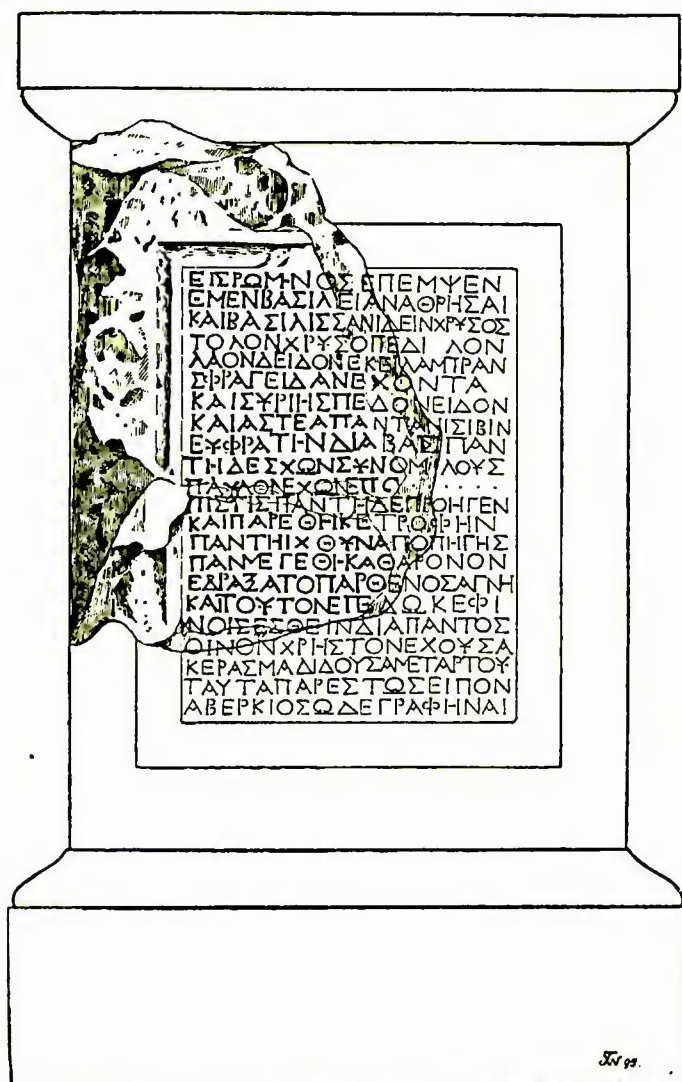 ΕΙΣΡΩΜΗΝΟΣΕΠΕΜΨΕΝ
ΕΜΕΝΒΑΣΙΛΕΙΑΝΑΘΡΗΣΑΙ
ΚΑΙΒΑΣΙΛΙΣΣΑΝΙΔΕΙΝΧΡΥΣΟΣ
ΤΟΛΟΝΧΡΥΣΟΠΕΔΙ ΛΟΝ
ΛΑΟΝΔΕΙΔΟΝΕΚΕΙΛΑΜΠΡΑΝ
ΣΦΡΑΓΕΙΔΑΝΕΧΟΝΤΑ
ΚΑΙΣΥΡΙΗΣΠΕΔΟΝΕΙΔΟΝ
ΚΑΙΑΣΤΕΑΠΑΝΤΑΝΙΣΙΒΙΝ
ΕΥΦΡΑΤΗΝΔΙΑΒΑΣΠΑΝ
ΤΗΔΕΣΧΩΝΣΥΝΟΜΙΛΟΥΣ
ΠΑΥΛΟΝΕΧΩΝΕΠΟ.....
ΠΙΣΤΙΣΠΑΝΤΗΔΕΠΡΟΗΓΕΝ
ΚΑΙΠΑΡΕΘΗΚΕΤΡΟΦΗΝ
ΠΑΝΤΗΙΧΘΥΝΑΠΟΠΗΓΗΣ
ΠΑΝΜΕΓΕΘΗΚΑΘΑΡΟΝΟΝ
ΕΔΡΑΞΑΤΟΠΑΡΘΕΝΟΣΑΓΝΗ
ΚΑΙΤΟΥΤΟΝΕΠΕΔΩΚΕΦΙ
ΛΟΙΣΕΣΘΕΙΝΔΙΑΠΑΝΤΟΣ
ΟΙΝΟΝΧΡΗΣΤΟΝΕΧΟΥΣΑ
ΚΕΡΑΣΜΑΔΙΔΟΥΣΑΜΕΤΑΡΤΟΥ
ΤΑΥΤΑΠΑΡΕΣΤΩΣΕΙΠΟΝ
ΑΒΕΡΚΙΟΣΩΔΕΓΡΑΦΗΝΑΙ